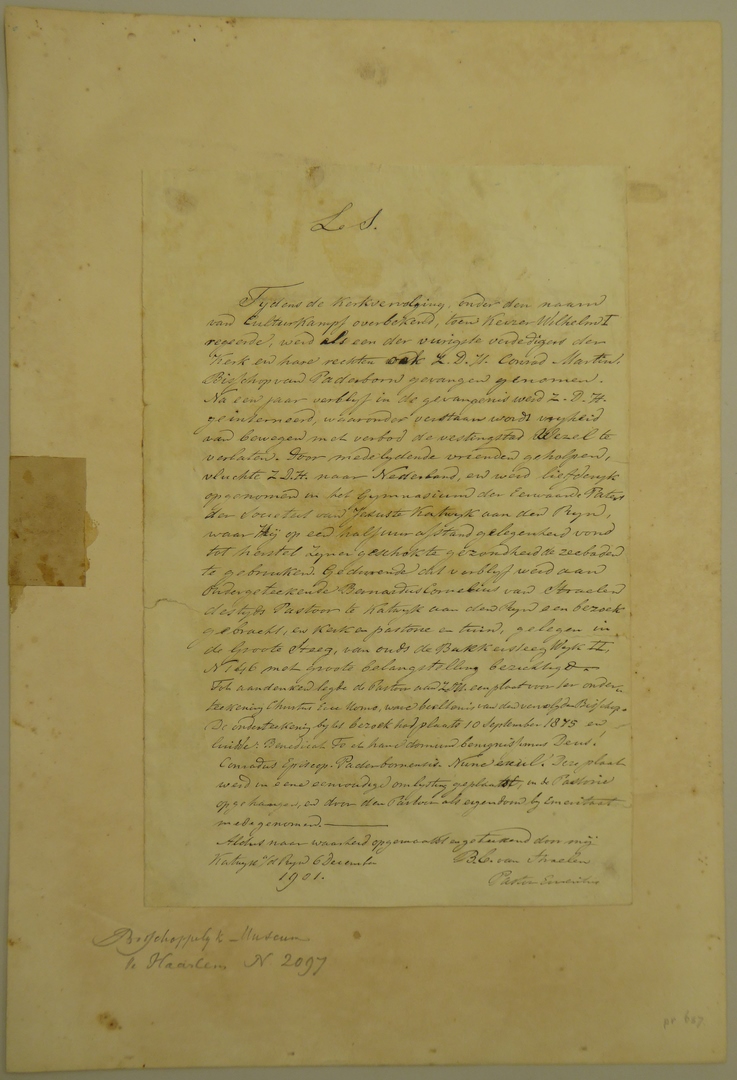 L. S.
Tijdens de Kerkvervolging, onder den naam
van Culturkampf overbekend, toen Keizer Wilhelm I
regeerde, werd als een der vurigste verdedigers der
Kerk en hare rechten ook Z. D. H. Conrad Martin,
Bisschop van Paderborn gevangen genomen.
Na een jaar verblijf in de gevangenis werd Z. D. H.
geinterneerd, waaronder verstaan wordt vryheid
van bewegen met verbod de vestingstad Wezel te
verlaten. Door medelydende vrienden geholpen,
vluchte Z. D. H. naar Nederland, en werd liefderyk
opgenomen in het Gymnasium der Eerwaarde Paters
der Societeit van Jesus te Katwyk aan den Ryn,
waar Hij op een half uur afstand gelegenheid vond
tot herstel zyner geschokte gezondheid de zeebaden
te gebruiken. Gedurende dit verblyf werd aan
ondergeteekende Bernardus Cornelius van Straelen
destyds Pastoor te Katwyk aan den Ryn een bezoek
gebracht, en Kerk en pastorie en tuin, gelegen in
de Groote Steeg, van ouds de Bakkersteeg Wyk II,
No 146 met groote belangstelling bezichtigd.
Tot aandenken legde de Pastoor aan Z.D.H. een plaat voor ter onder-
teekening Christus Ecce Homo, ware beeltenis van den vervolgden Bisschop.
De onderteekening by het bezoek had plaats 10 September 1875 en
luidde: Benedicat Te et hanc domum benignissimus Deus.
Conradus Episcop. Paderbornensis Nunc exul. Deze plaat
werd in eene eenvoudige omlysting geplaatst, in de Pastorie
opgehangen, en door den Pastoor als eigendom by Emeritaat
medegenomen.
Aldus naar waarheid opgemaakt en geteekend door mij
Katwyk a/d Ryn 6 December B. C. van Straelen
1901. Pastor Emeritus
Bisschoppelyk Museum
te Haarlem N 2097